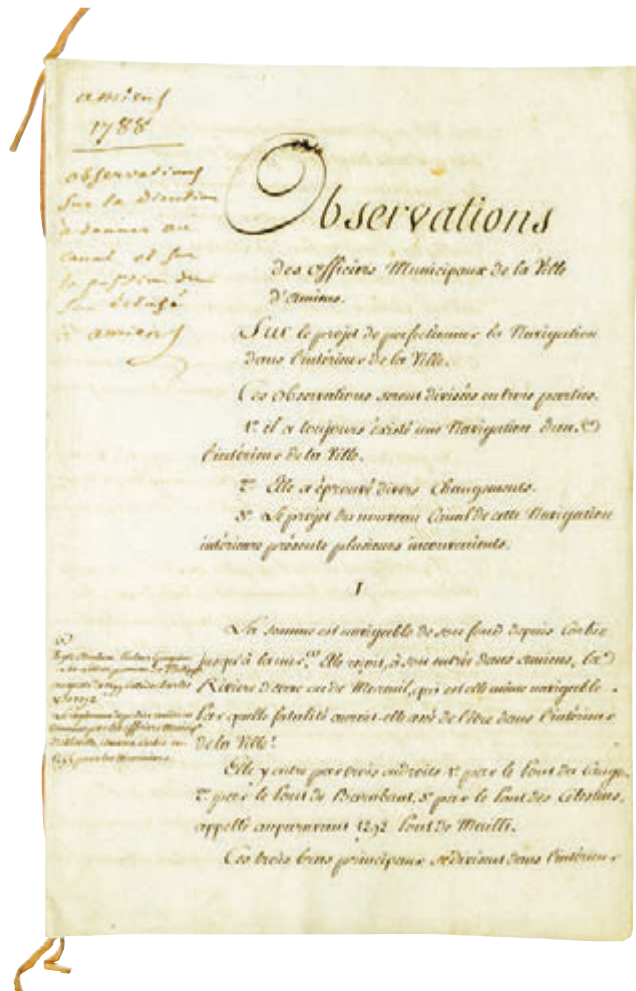 amiens
1788
observations
sur la direction
à donner au
canal et sur
la position du
à amiens
Observations
des officiers Municipaux de la Ville
d'amiens.
Sur le projet de perfectionner la Navigation
dans l'intérieur de la Ville.
Ces observations seront divisées en trois parties.
1.° il a toujours existé une Navigation dans
l'intérieur de la Ville.
2.° Elle a éprouvé divers Changements.
3.° Le projet du nouveau Canal de cette Navigation
intérieure présente plusieurs inconvenients.
I
La somme est navigable de son fond depuis
jusqu'à la mer. Elle reçoit, à son entrée dans amiens, la
Rivière ou de Moreuil, qui est elle même navigable.
Par quelle fatalité auroit-elle cessé de l'être dans l'intérieur
de la Ville?
Elle y entre par trois endroits 1.° par le Pont du Cange,
2.° par le Pont de Barabant, 3.° par le Pont des Celestins,
appellé auparavant 1292 Pont de Mailli.
Ces trois bras principaux se divisent dans l'intérieur